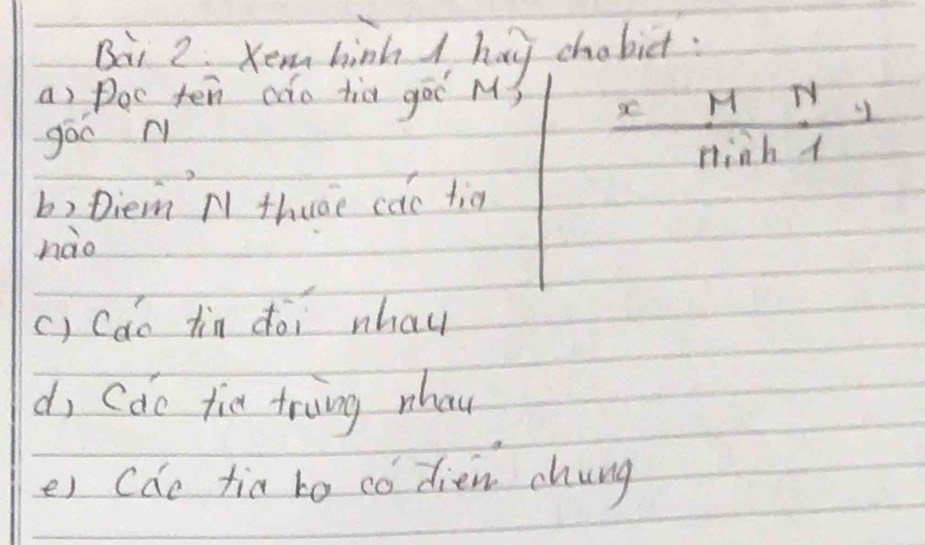 Bài 2: Xem hình 1 hãy cho biết:
a) Đọc tên các tia gốc M;
gốc N
x M N y
Hình 1
b) Điểm N thuộc các tia
nào
c) Các tia đối nhau
d) Các tia trùng nhau
e) Các tia ko có điểm chung